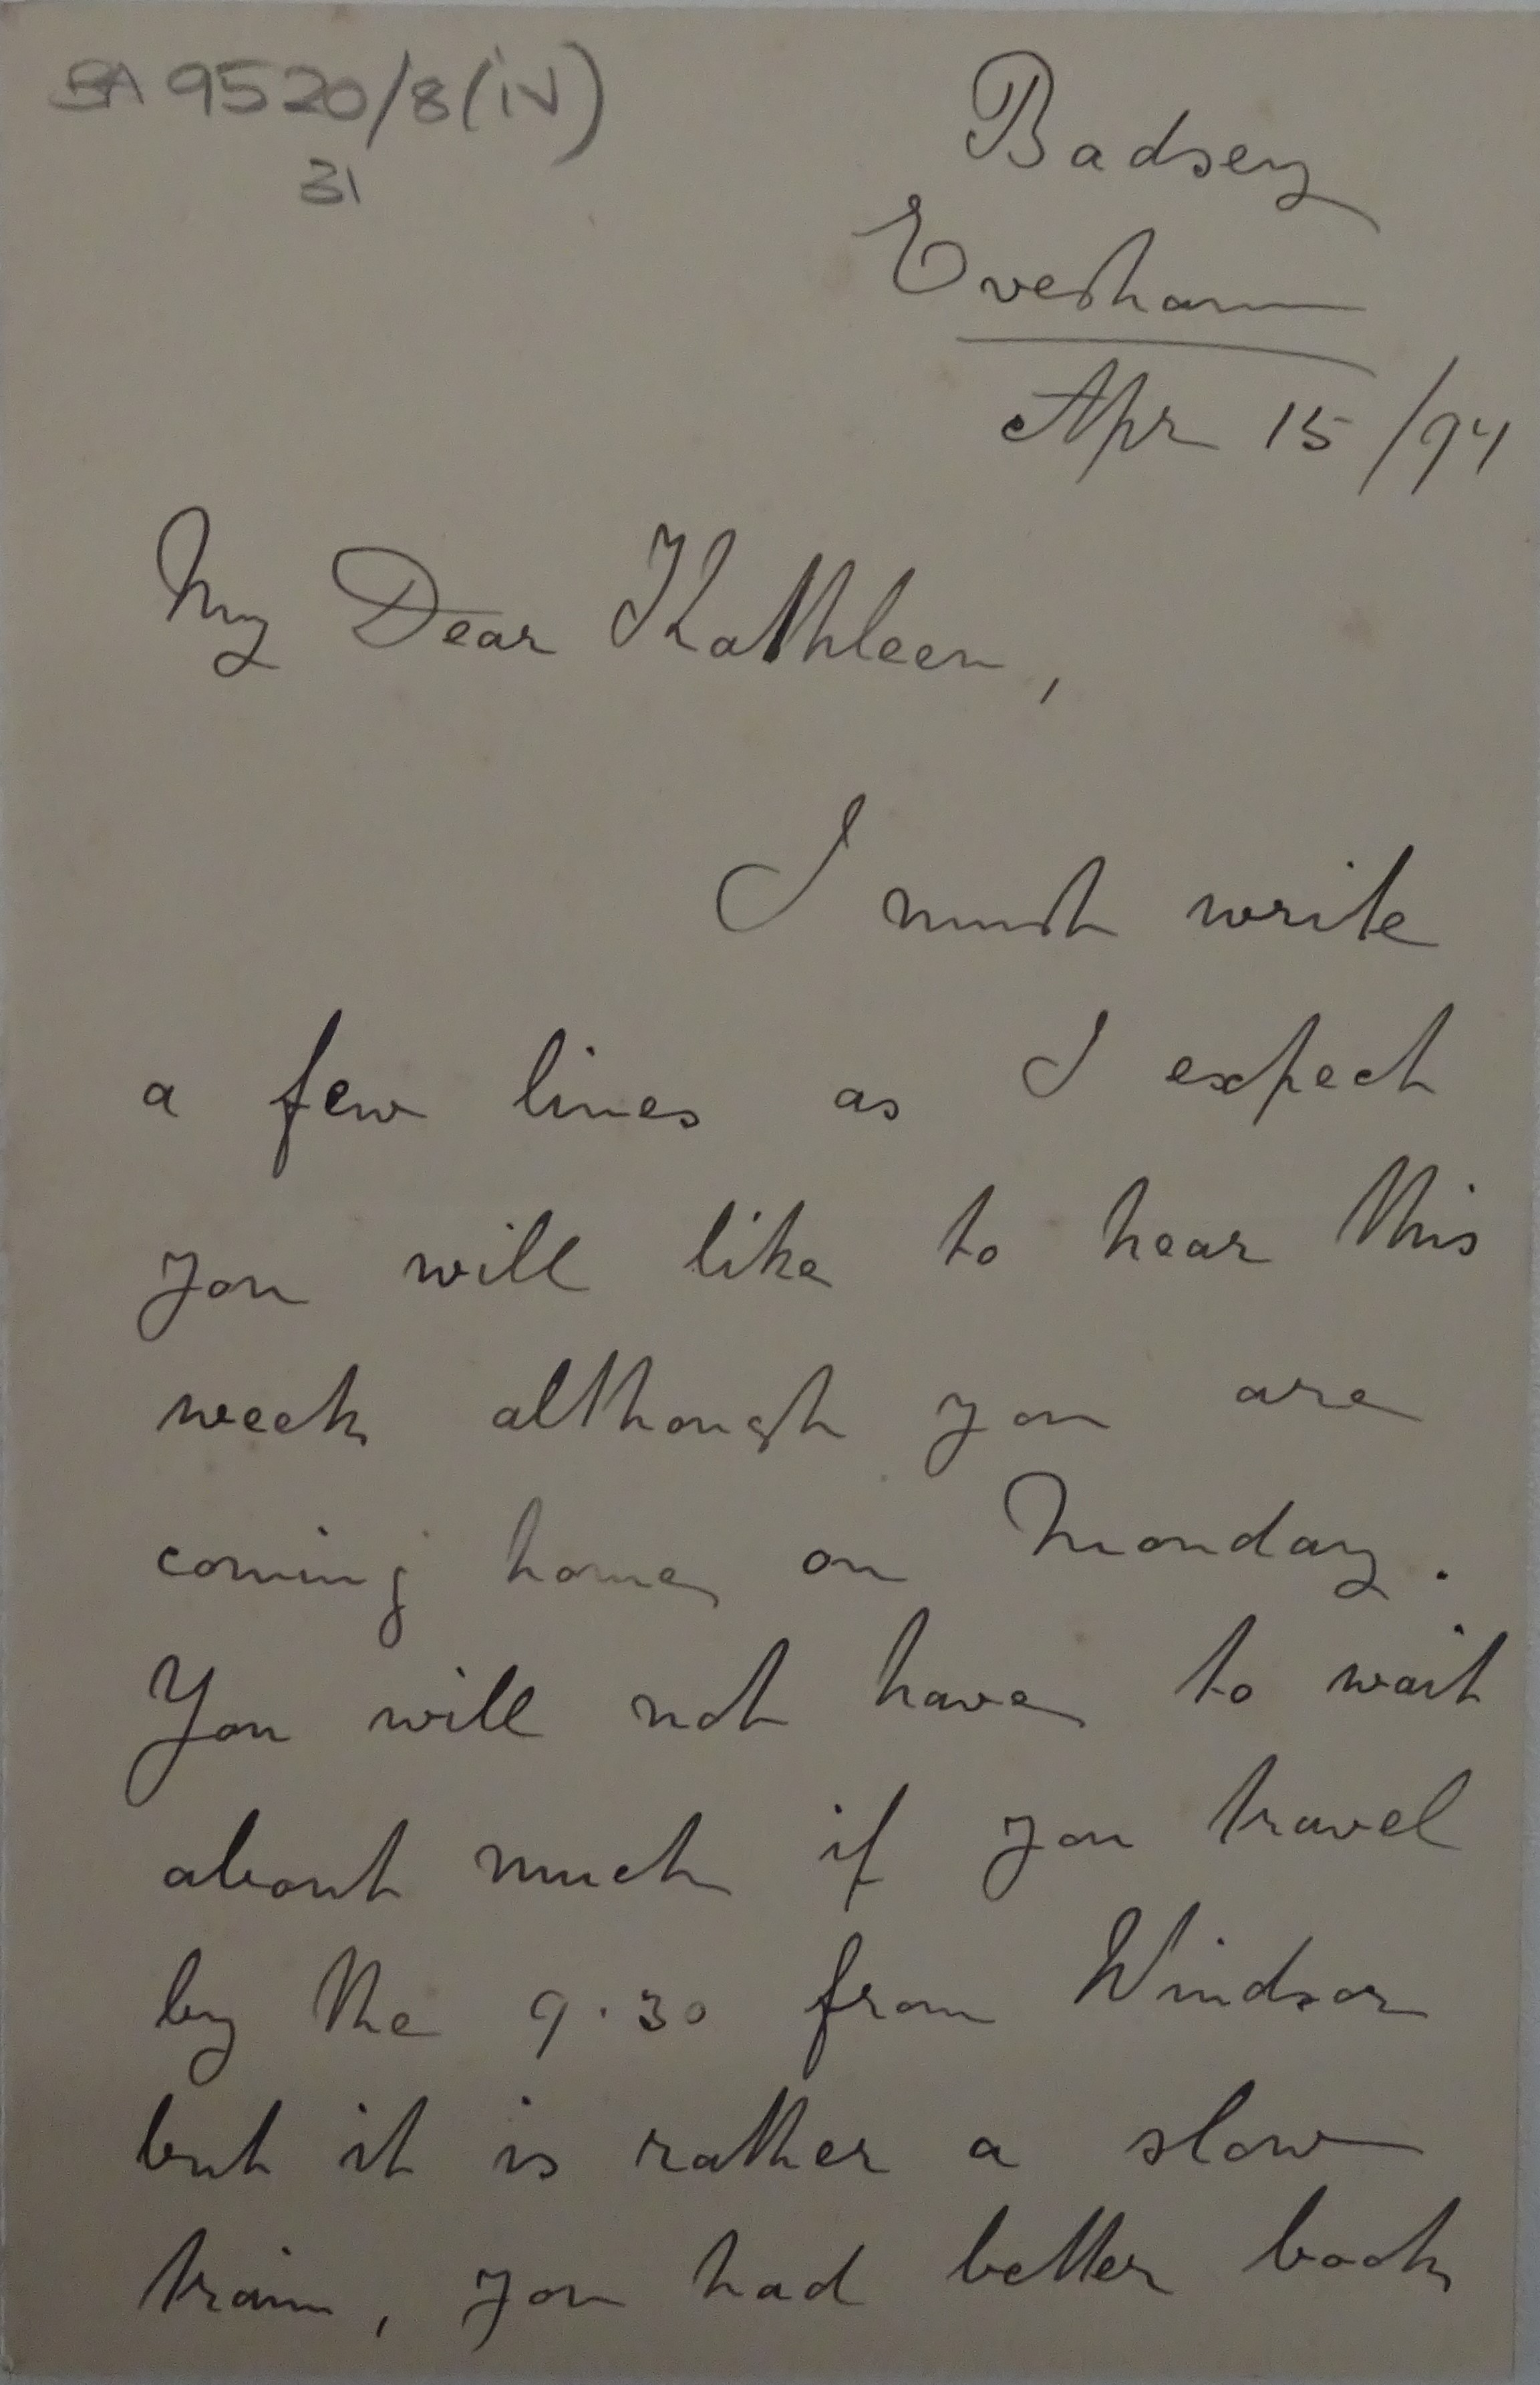 BA 9520/8(iv)
31
Badsey
Evesham
Apr 15/94
My Dear Kathleen,
I must write
a few lines as I expect
you will like to hear this
week although you are
coming home on Monday.
You will not have to wait
about much if you travel
by the 9.30 from Windsor
but it is rather a slow
train, you had better book